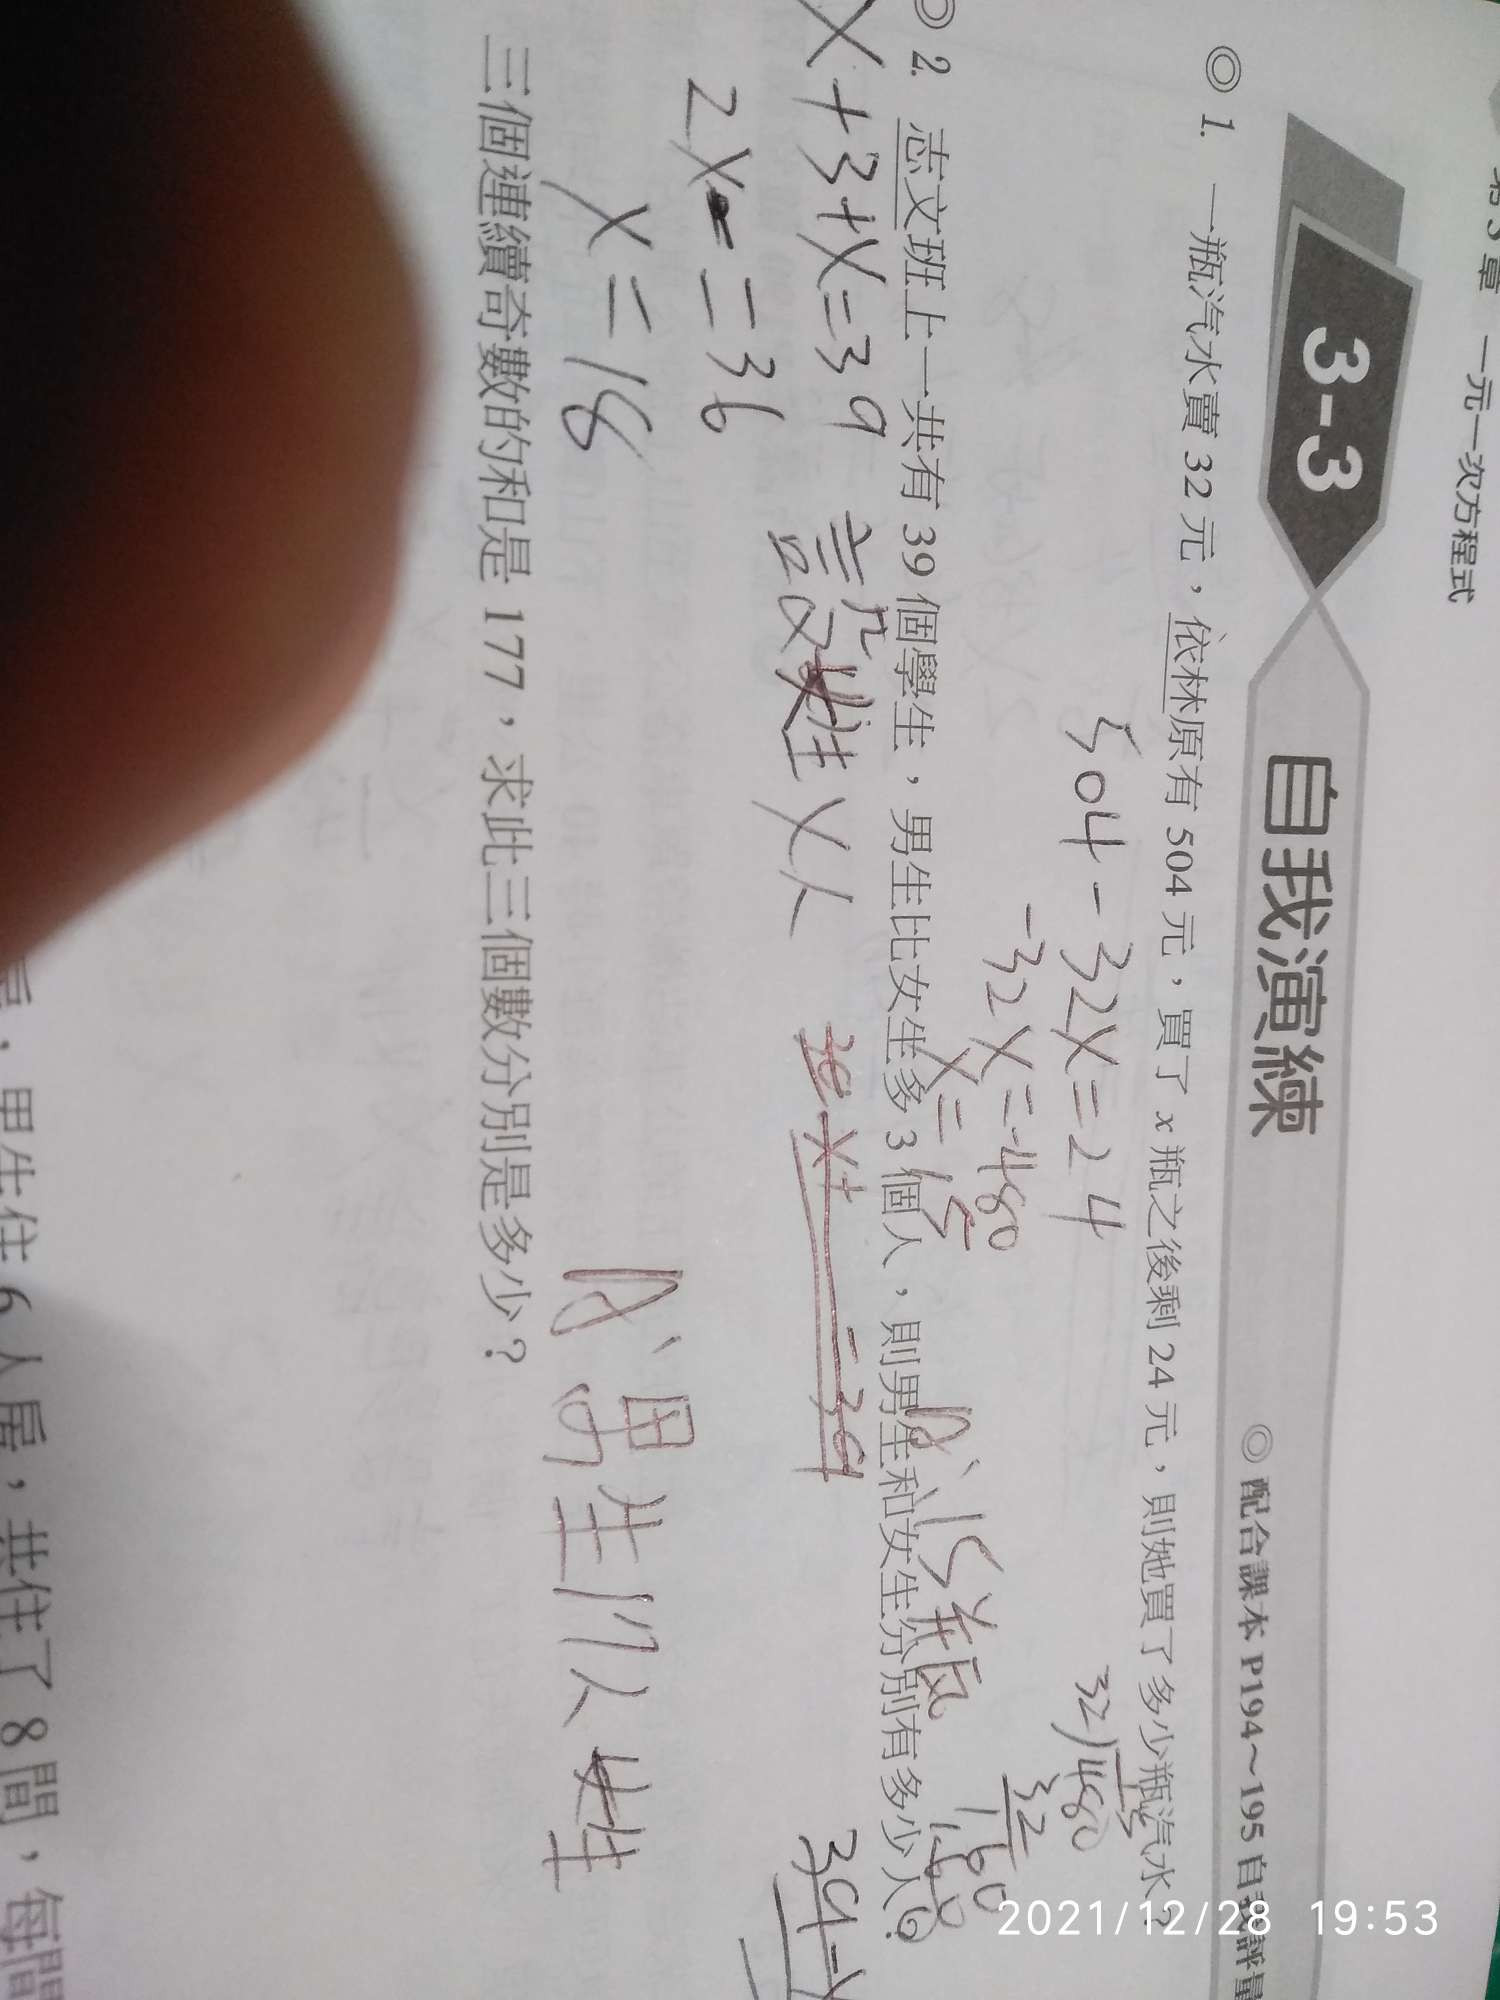 第3章 一元一次方程式
3-3 自我演練
◎配合課本 P194～195 自我評量
◎1. 一瓶汽水賣 32 元，依林原有 504 元，買了 x 瓶之後剩 24 元，則她買了多少瓶汽水？
504-32X=24
-32X=-480
X=15
A、15瓶
15
32)480
32
160
160
0
◎2. 志文班上一共有 39 個學生，男生比女生多 3 個人，則男生和女生分別有多少人？
X+3+X=39
設女生X人
2X=36
X=18
X+ =39
39-X
A、男生17人女生
三個連續奇數的和是 177，求此三個數分別是多少？
，男生住 6 人房，共住了 8 間，每間
2021/12/28 19:53